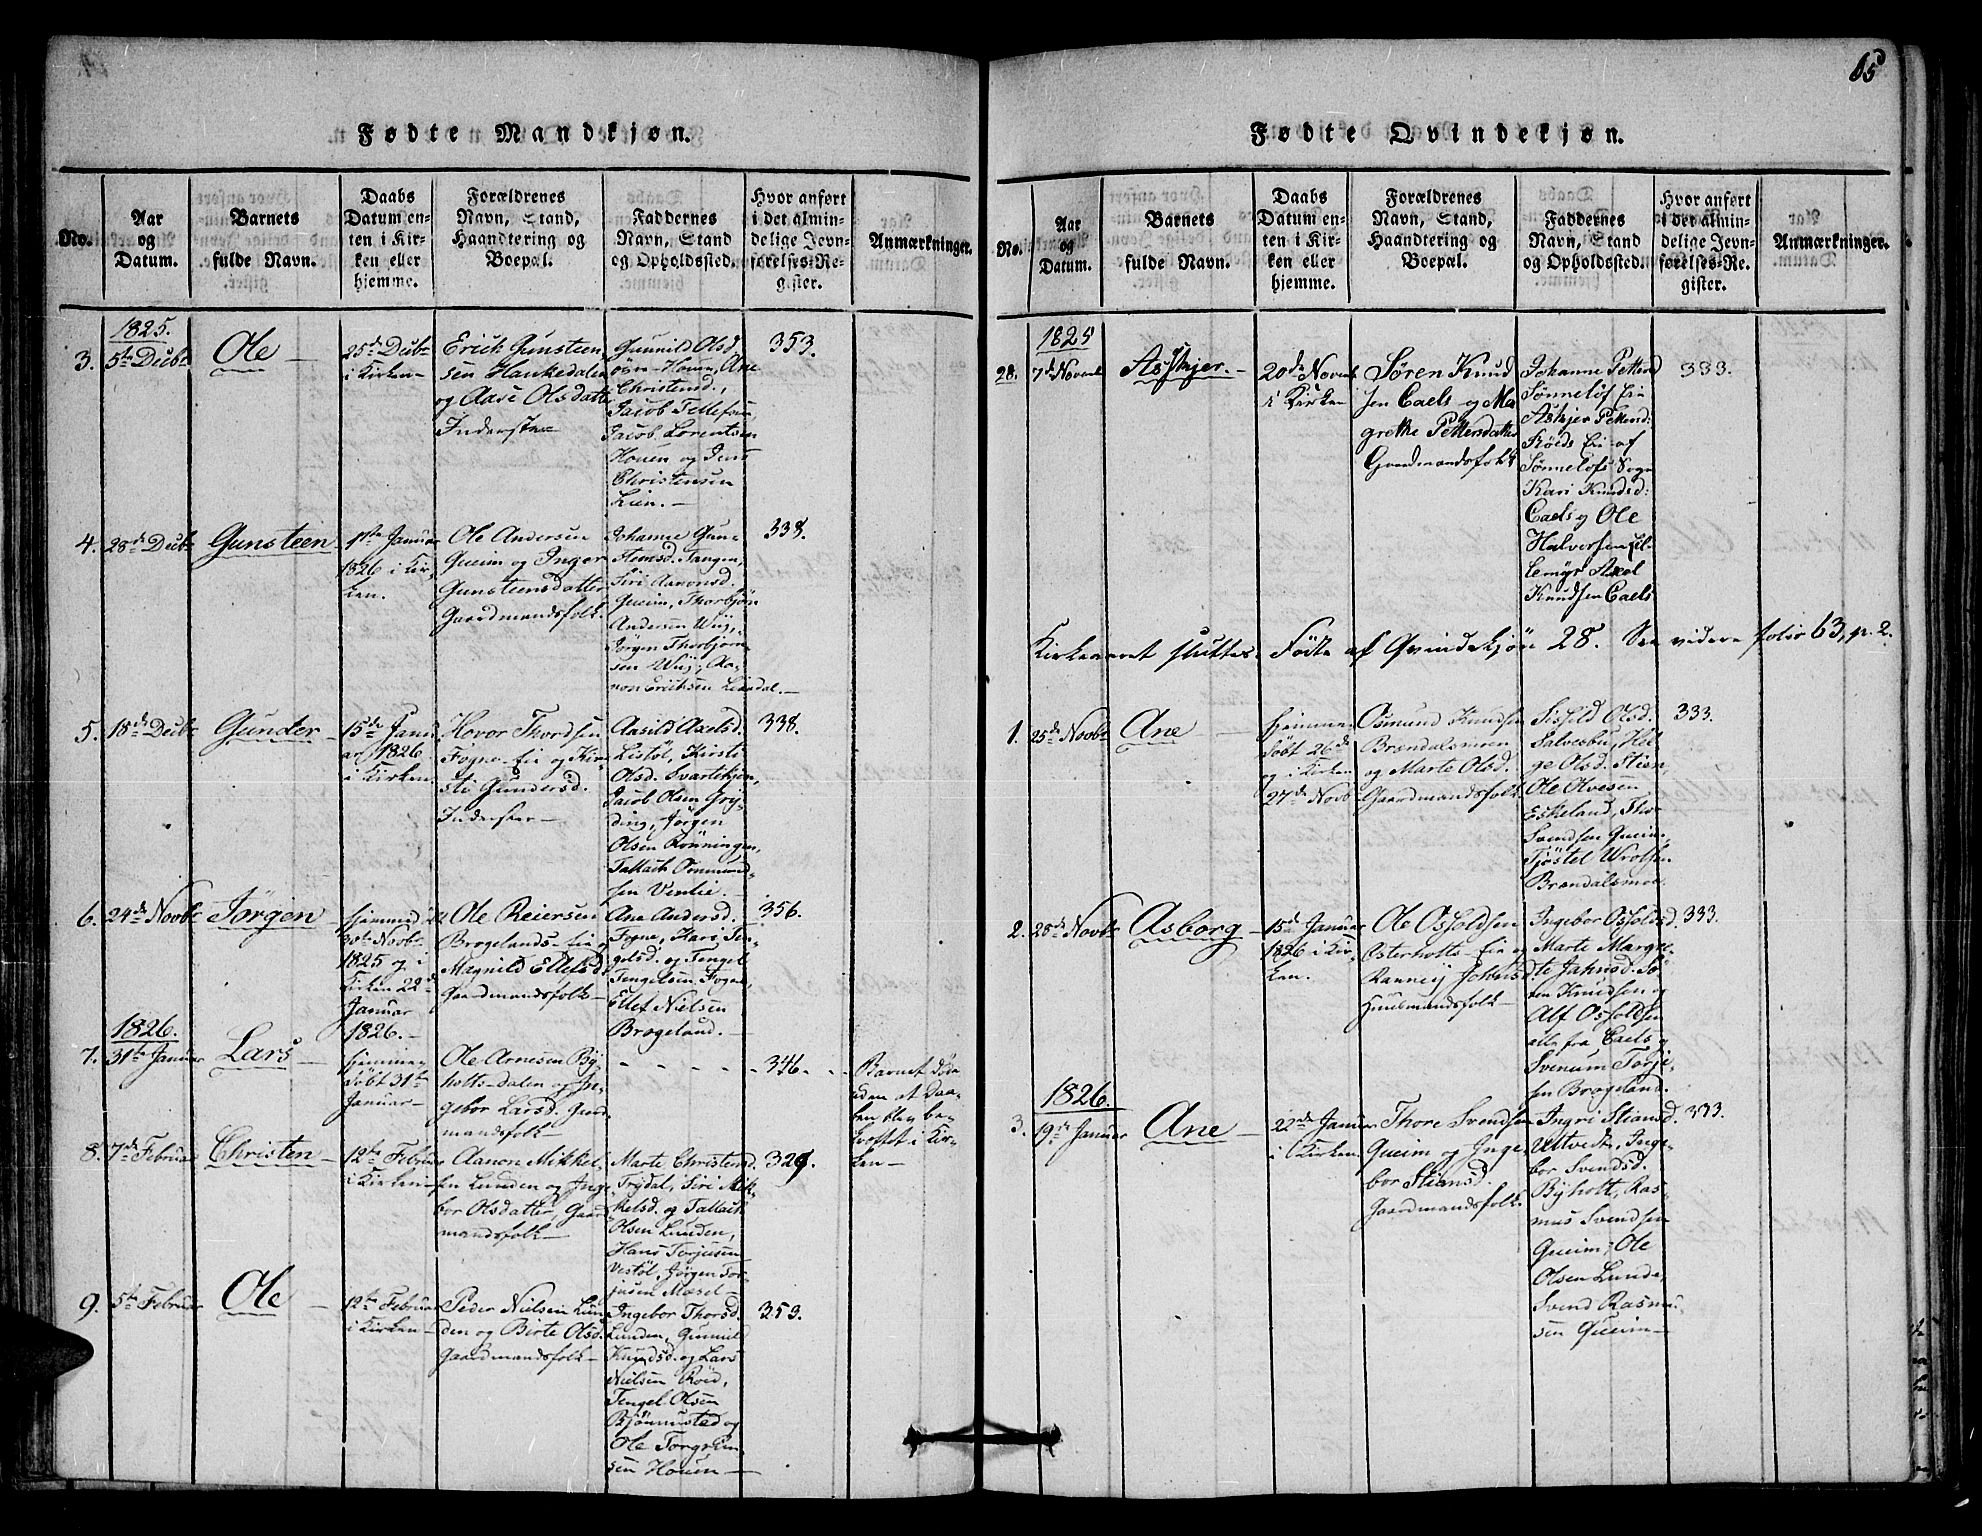 65
Fødte Mandkjøn.
No.
Aar
og
Datum.
Barnets
fulde Navn.
Daabs
Datum en-
ten i Kir-
ken eller
hjemme.
Forældrenes
Navn, Stand,
Haandtering og
Boepæl.
Faddernes
Navn, Stand
og Opholdssted.
Hvor anført
i det almin-
delige Jevn-
førelses-Re-
gister.
Anmærkninger.
1825.
3.
5te Decbr
Ole
25de Decbr
i Kirken
Erick Gunsteen
sen Haukedalen
og Aase Olsdatter
Inderster
Gunnild Olsd
Houen, Ane
Christensd.,
Jacob Tellefsen,
Jacob Lorentsen
Houen og Jens
Christensen
Lien.
353.
4.
28de Decbr
Gunsteen
1ste Januar
1826 i Kir-
ken.
Ole Andersen
Queim og Inger
Gunsteensdatter
Gaardmandsfolk.
Johanne Gun-
steensd. Tangen,
Siri Aavonsd.
Queim, Thorbjøn
Andersen Wiig,
Jørgen Thorbjørn
sen Wiig, Aa-
non Ericksen Lindal.
338.
5.
18de Decbr
Gunder
15de Janu
ar 1826
i Kirken.
Hovor Thordsen
Fogne-Eie og Kir
sti Gundersd.
Inderster
Aasild Axelsd.
Listøl, Kirsti
Olsd. Svartekjen,
Jacob Olsen Gry-
ding, Jørgen
Olsen Rønningen,
Tallach Ommund
sen Venlie.
338.
6.
24de Novbr
Jørgen
hjemmed
30te Novbr
1825 og i
Kirken 22de
Januar
1826.
Ole Reiersen
Brøgelands-Eie og
Magnild Ellefsd
Gaardmandsfolk
Ane Andersd.
Fogne, Kari Ten-
gelsd. og Tengel
Tengelsen Fogne,
Ellef Nielsen
Brøgeland.
356.
1826.
7.
31te Januar
Lars
hjemme
døbt 31te
Januar
Ole Arnesen By-
holtsdalen og In-
gebor Larsd. Gaard
mandsfolk
346.
Barnet døde
uden at Daa-
ben blev be-
kræftet i Kir-
ken
8.
7de Februar
Christen
12te Februar
i Kirken
Aanon Mikkel-
sen Lunden og Inge-
bor Olsdatter, Gaard
mandsfolk
Marte Christensd.
Trydal, Siri Mik-
kelsd. og Tallach
Olsen Lunden,
Hans Torjusen
Vestøl, Jørgen Tor-
jusen Mæsel
329.
9.
5te Februar
Ole
12te Februar
i Kirken
Peder Nielsen Lun
den og Birte Olsd.
Gaardmandsfolk
Ingebor Thorsd.
Lunden, Gunnild
Knudsd. og Lars
Nielsen Røed,
Tengel Olsen
Bjønnustad og
Ole Torgrim-
sen Houen
353.
Fødte Qvindekjøn.
No.
Aar
og
Datum.
Barnets
fulde Navn.
Daabs
Datum en-
ten i Kir-
ken eller
hjemme.
Forældrenes
Navn, Stand,
Haandtering og
Boepæl.
Faddernes
Navn, Stand
og Opholdssted.
Hvor anført
i det almin-
delige Jevn-
førelses-Re-
gister.
Anmærkninger.
1825
28.
7de Novbr
Asskjer.
20de Novbr
i Kirken
Søren Knud
sen Caels og Ma
grethe Pettersdatter
Gaardmandsfolk
Johanne Pettersd
Sønneløf Eie
Askjer Pettersd:
Røeds Eie af
Sønneløfs Sogn
Kari Knudsd:
Caels og Ole
Halversen Sel-
lemyr Axel
Knudsen Caels
333.
Kirkeaaret sluttes. Födte af Qvindekjön 28. See videre folio 63, p. 2.
1.
25de Novbr
Ane
hjemme
döbt 26de
og i Kirken
27de Novb
Osmund Knudsen
Brøndalsmoen
og Marte Olsd.
Gaardmandsfolk
Sisfeld Olsd.
Salvesbu, Hel-
ge Olsd. Stien,
Ole Olvesen
Eskeland, Thor
Svendsen Queim,
Tjöstel Wrolsen
Brøndalsmoe.
333.
2.
28de Novbr
Asborg
15de Januar
1826 i Kir-
ken.
Ole Osfoldsen
Osterholts-Eie og
Ranneij Johansd
Huusmandsfolk
Ingebor Osfoldsd.
Marte Margre-
te Jahnsd. Sö-
ren Knudsen og
Alf Osfoldsen
alle fra Caels og
Svenum Torje-
sen Brøgeland.
333.
1826.
3.
19de Januar
Ane
22de Januar
i Kirken
Thore Svendsen
Queim og Inge
bor Stiansd.
Gaardmandsfolk.
Ingri Stiansd.
Udtvedt, Inge-
bor Svendsd.
Byholt, Ras-
mus Svendsen
Queim, Ole
Olsen Lunde,
Svend Rasmu-
sen Queim
333.